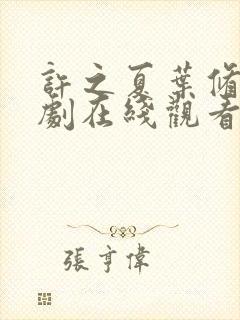 許之夏葉脩
劇在綫觀看
張亨偉